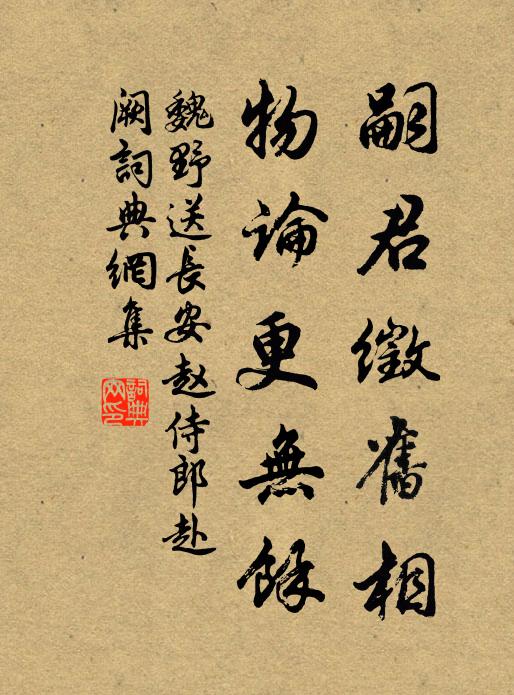 嗣君徵舊相
物論更無餘
魏野送長安赵侍郎赴
闕詞典網集
詞典网印